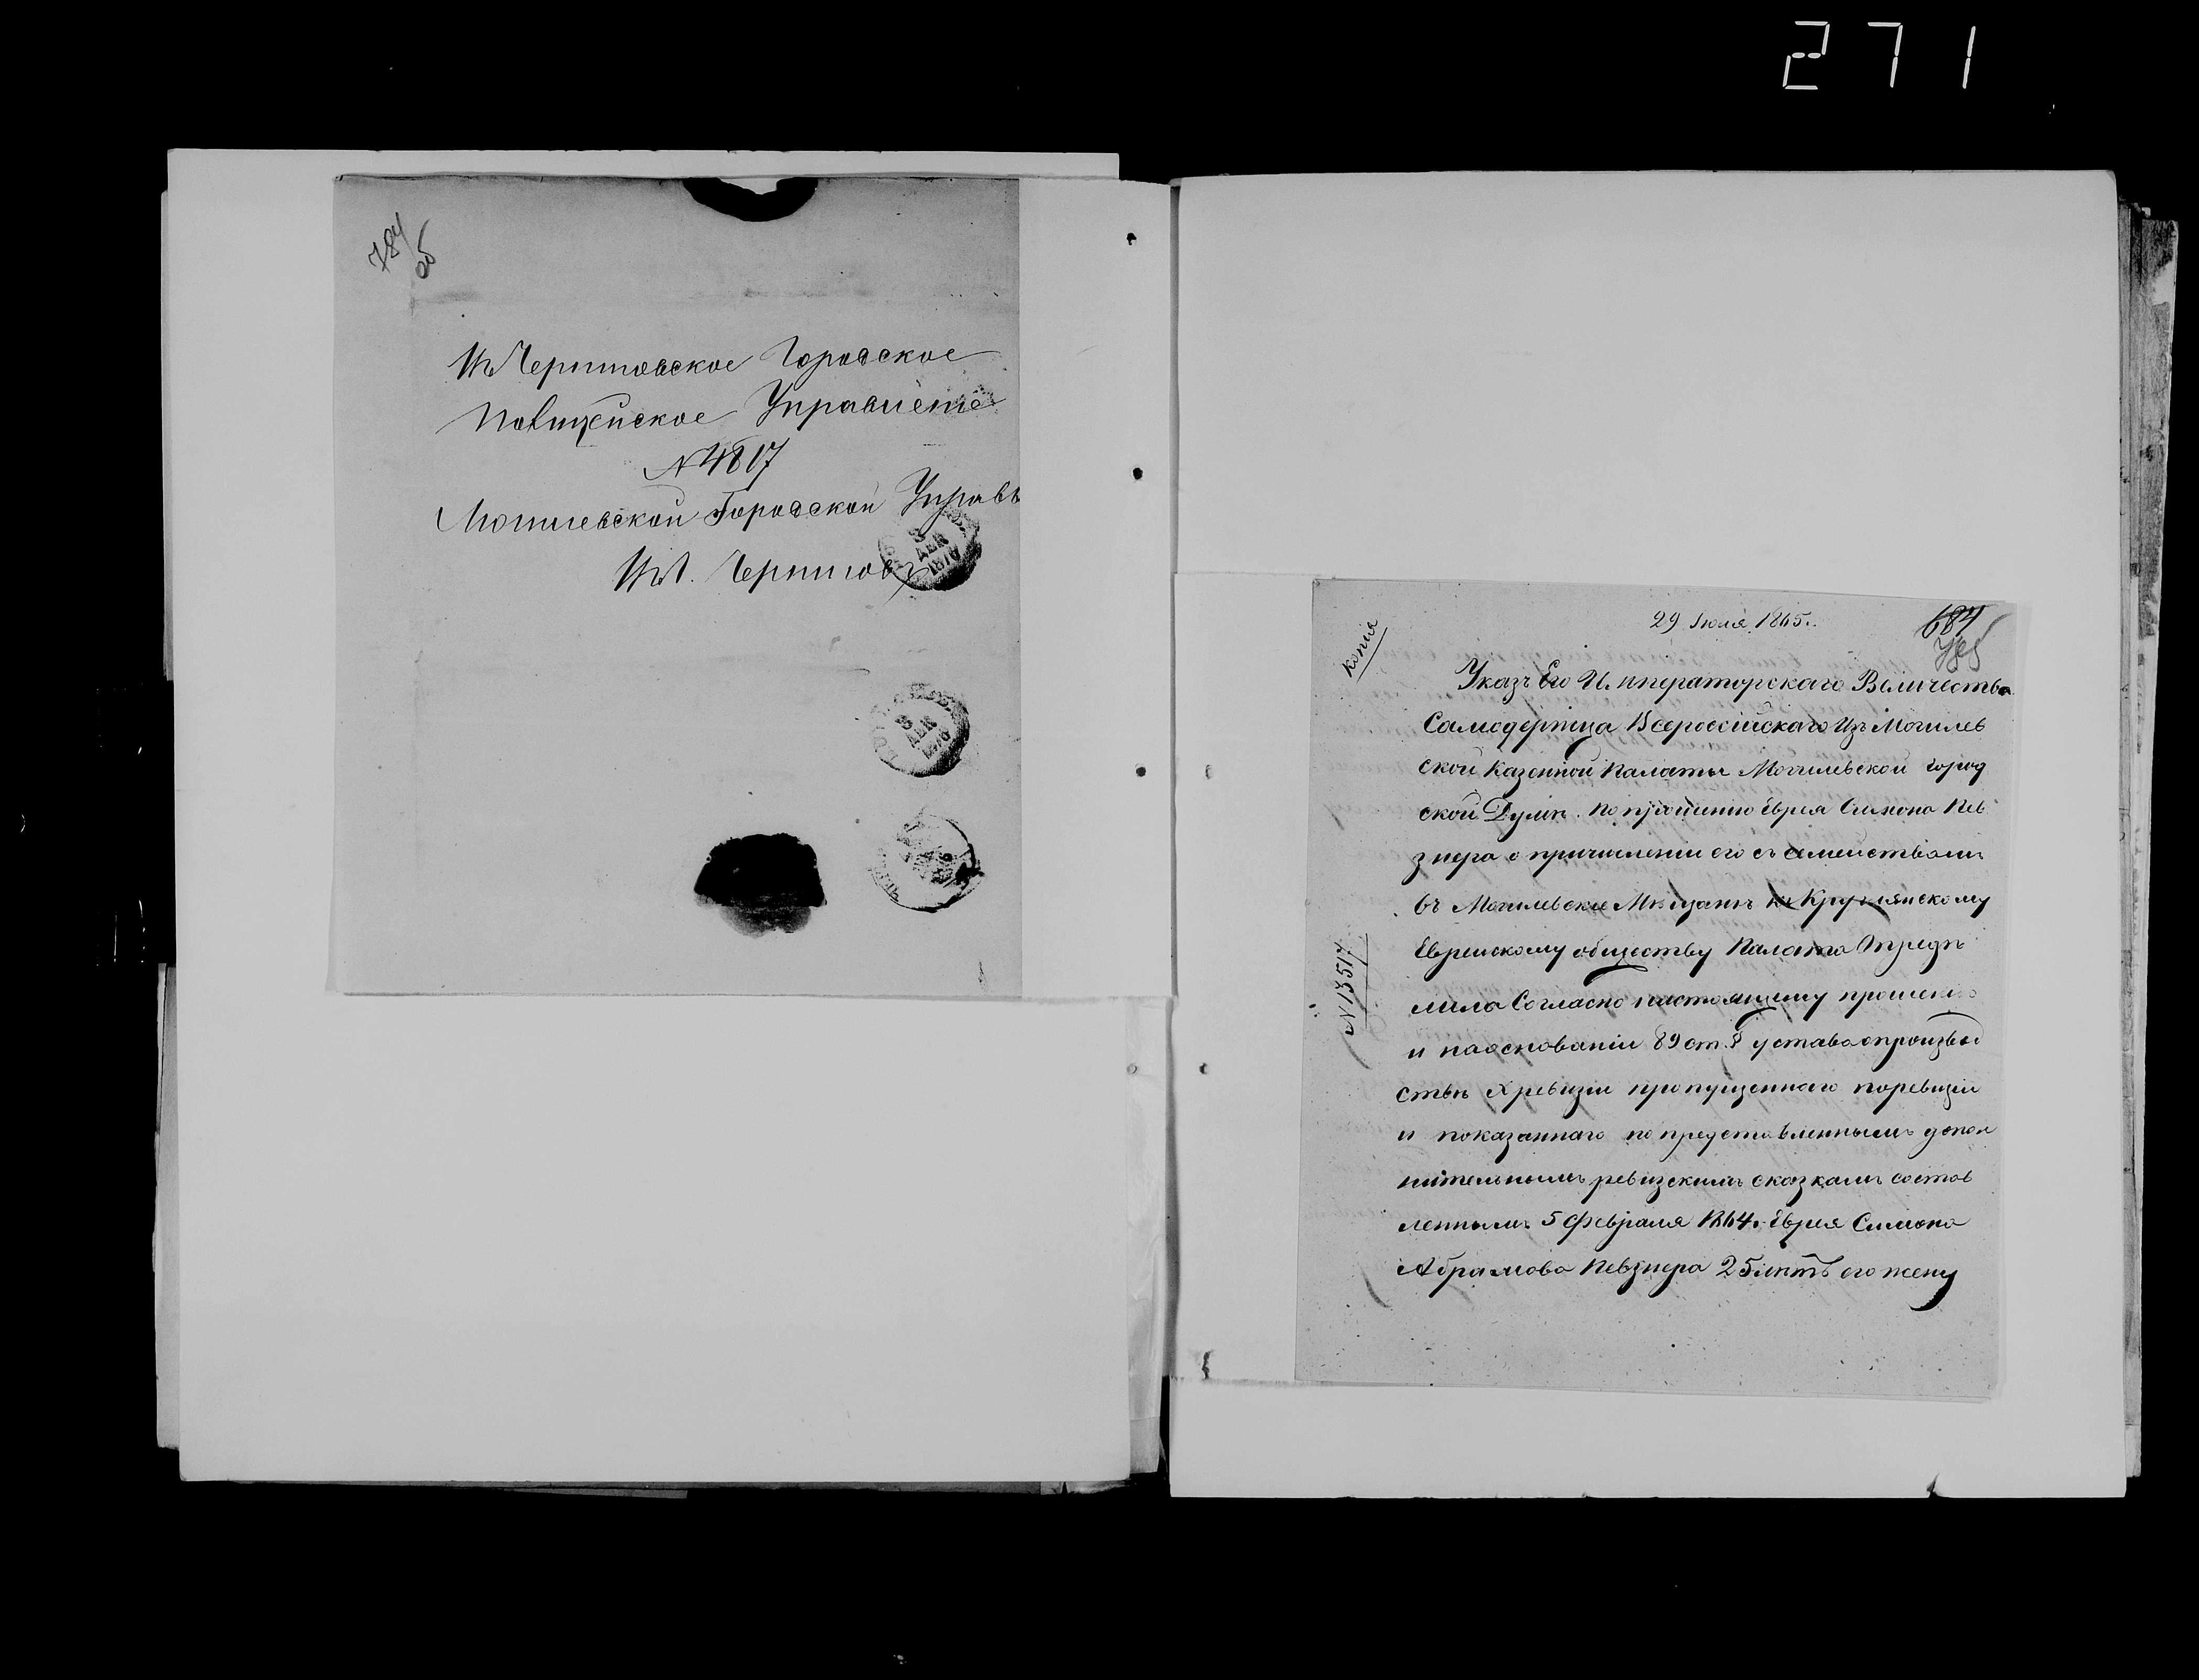 271
784
об
Въ Черниговское Городское
Полицейское Управленіе
№ 4817
Могилевской Городской Управы
Въ г. Черниговъ
3
ДЕК
1876
3
ДЕК
1876
Копія
29 Іюля 1865 г.
684
785
Указъ Его Императорскаго Величества
Самодержца Всероссійскаго Изъ Могилев
ской Казенной Палаты Могилевской город
ской Думѣ. По прошенію Еврея Симона Пев
знера о причисленіи его съ семействомъ
въ Могилевскіе Мѣщане къ Круглянскому
Еврейскому обществу Палата Опредѣ
лила Согласно настоящему прошенію
и наоснованіи 89 ст. уставаопроизвод
ствѣ Х ревизіи пропущеннаго поревизіи
и показаннаго попредставленнымъ допол
нительнымъ ревизскимъ сказкамъ состав
леннымъ 5 Февраля 1864 г. Еврея Симона
Абрамова Певзнера 25 лѣтъ его жену
№ 13517